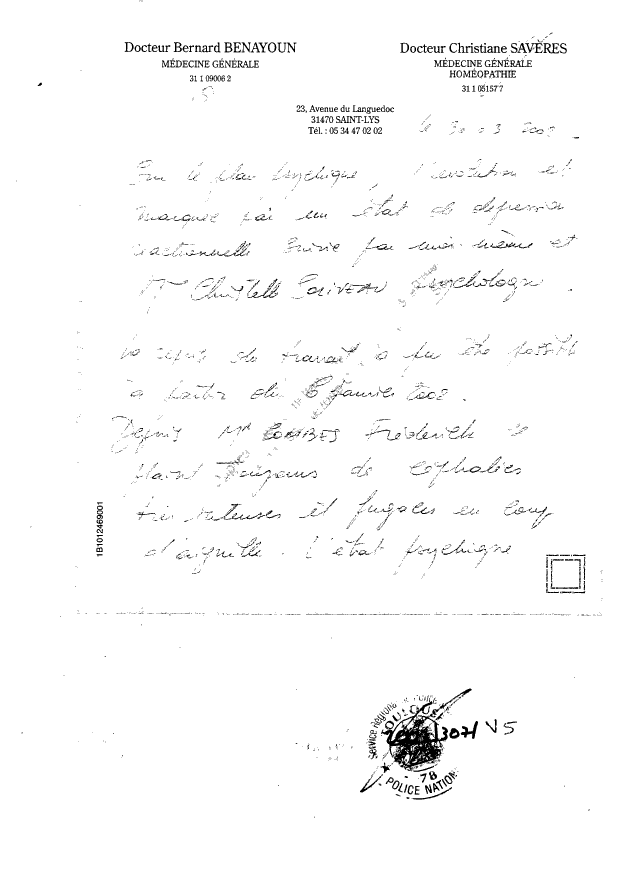 Docteur Bernard BENAYOUN
MÉDECINE GÉNÉRALE
31 1 09006 2
Docteur Christiane SAVÈRES
MÉDECINE GÉNÉRALE
HOMÉOPATHIE
31 1 05157 7
23, Avenue du Languedoc
31470 SAINT-LYS
Tél. : 05 34 47 02 02
le 30 03 200
Sur le plan psychique, l'évolution est
marquée par un état de dépression
réactionnelle suivie par moi-même et
Mme Psychologue.
La reprise du travail a pu être possible
à partir du 6 Janvier 2002.
Depuis Mr COMBES Frédérick se
plaint toujours de céphalées
très et fugaces en coup
d'aiguille. L'état psychique
1B1012469001
Service Régional de Police
TOULOUSE
3071 V5
78
POLICE NATION